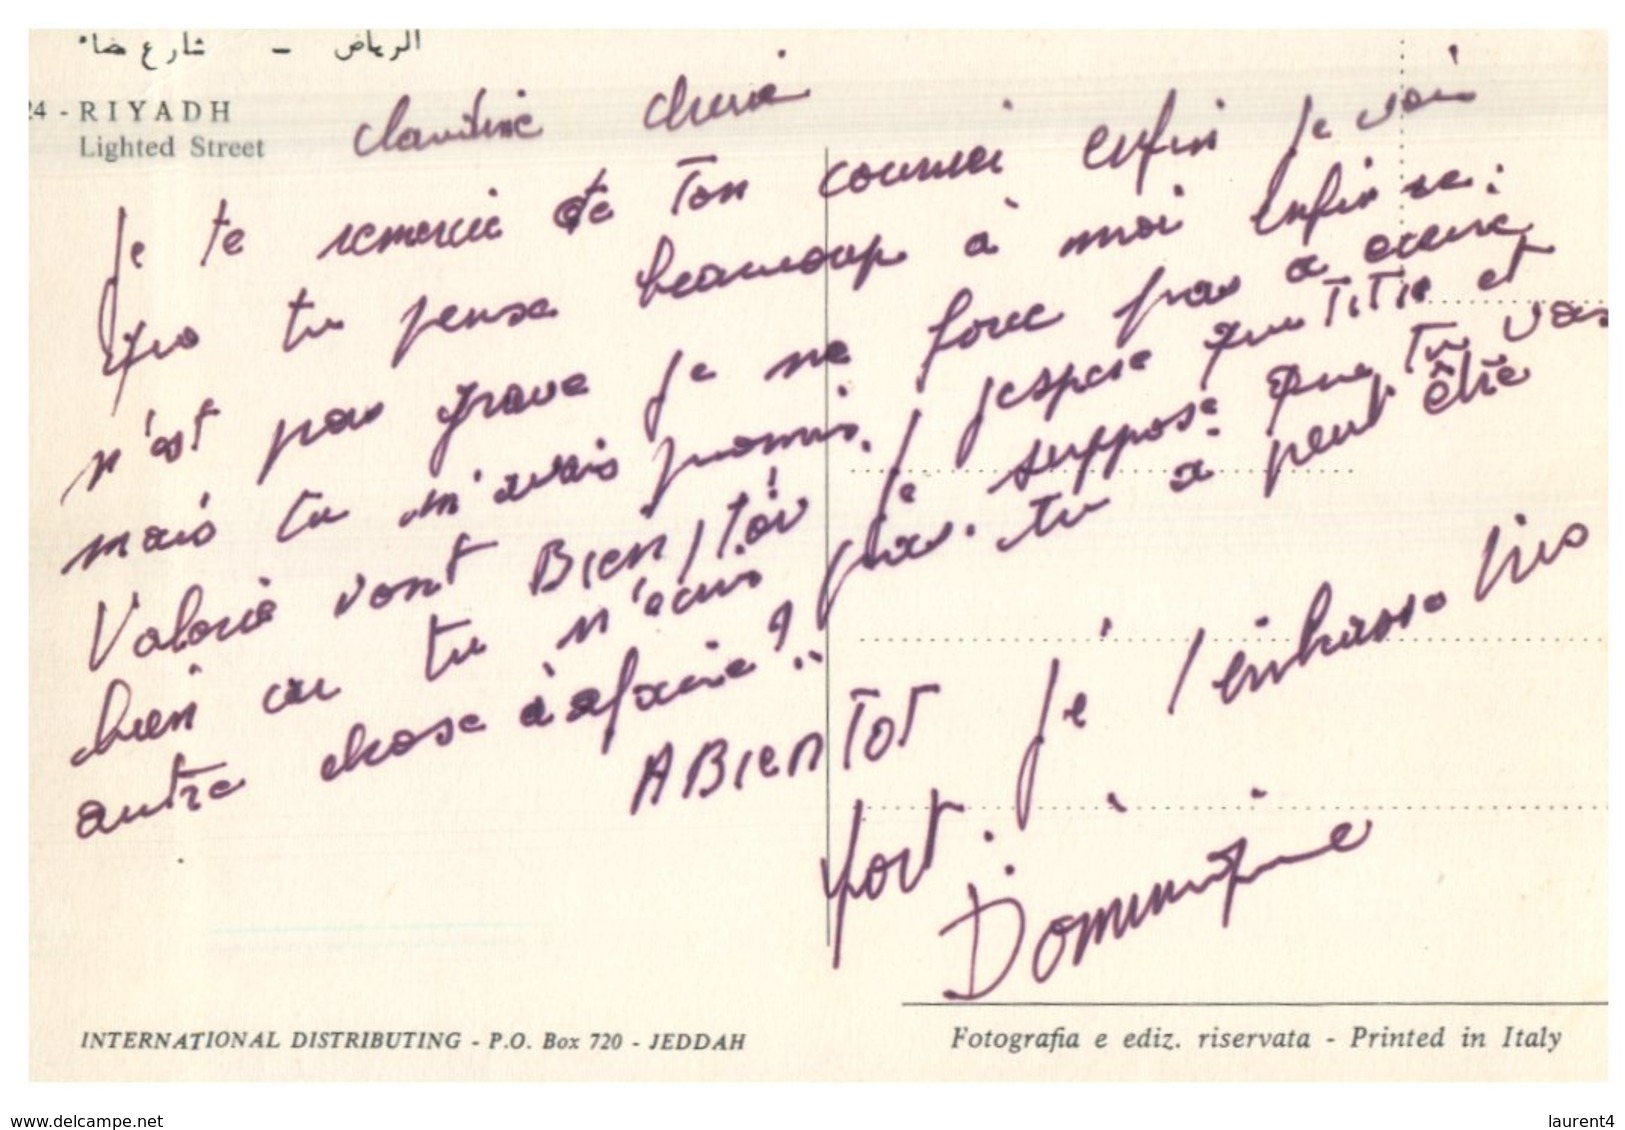 شارع ضاء - الرياض
24 - RIYADH
Lighted Street
Claudine cherie
Je te remercie de ton courrier enfin je vois
que tu pense beaucoup à moi enfin ce
n'est pas grave je ne force pas a ecrire
mais tu m'avais promis. J'espere que Titie et
Valerie vont Bien, Toi Je suppose que Tu vas
bien car tu n'ecris pas. tu a peut être
autre chose à faire?..
A Bientot Je t'embrasse tres
fort.
Dominique
INTERNATIONAL DISTRIBUTING - P.O. Box 720 - JEDDAH
Fotografia e ediz. riservata - Printed in Italy
www.delcampe.net
laurent4